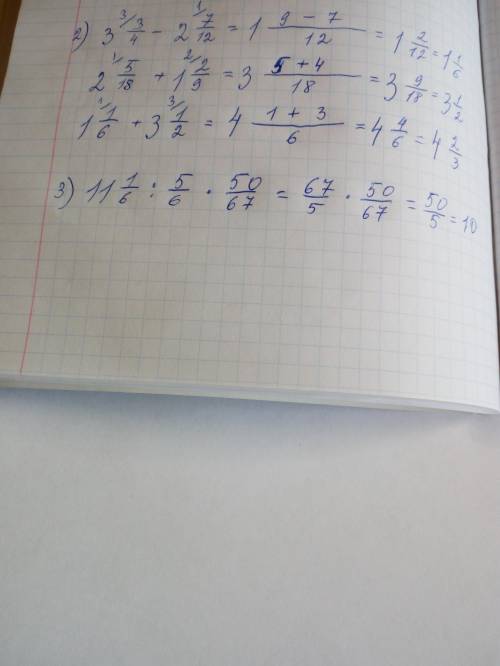 2) 3 ³⁄ 3/4 - 2 ¹⁄ 7/12 = 1 (9 - 7)/12 = 1 2/12 = 1 1/6
2 ¹⁄ 5/18 + 1 ²⁄ 2/9 = 3 (5 + 4)/18 = 3 9/18 = 3 1/2
1 ¹⁄ 1/6 + 3 ³⁄ 1/2 = 4 (1 + 3)/6 = 4 4/6 = 4 2/3
3) 11 1/6 : 5/6 · 50/67 = 67/5 · 50/67 = 50/5 = 10